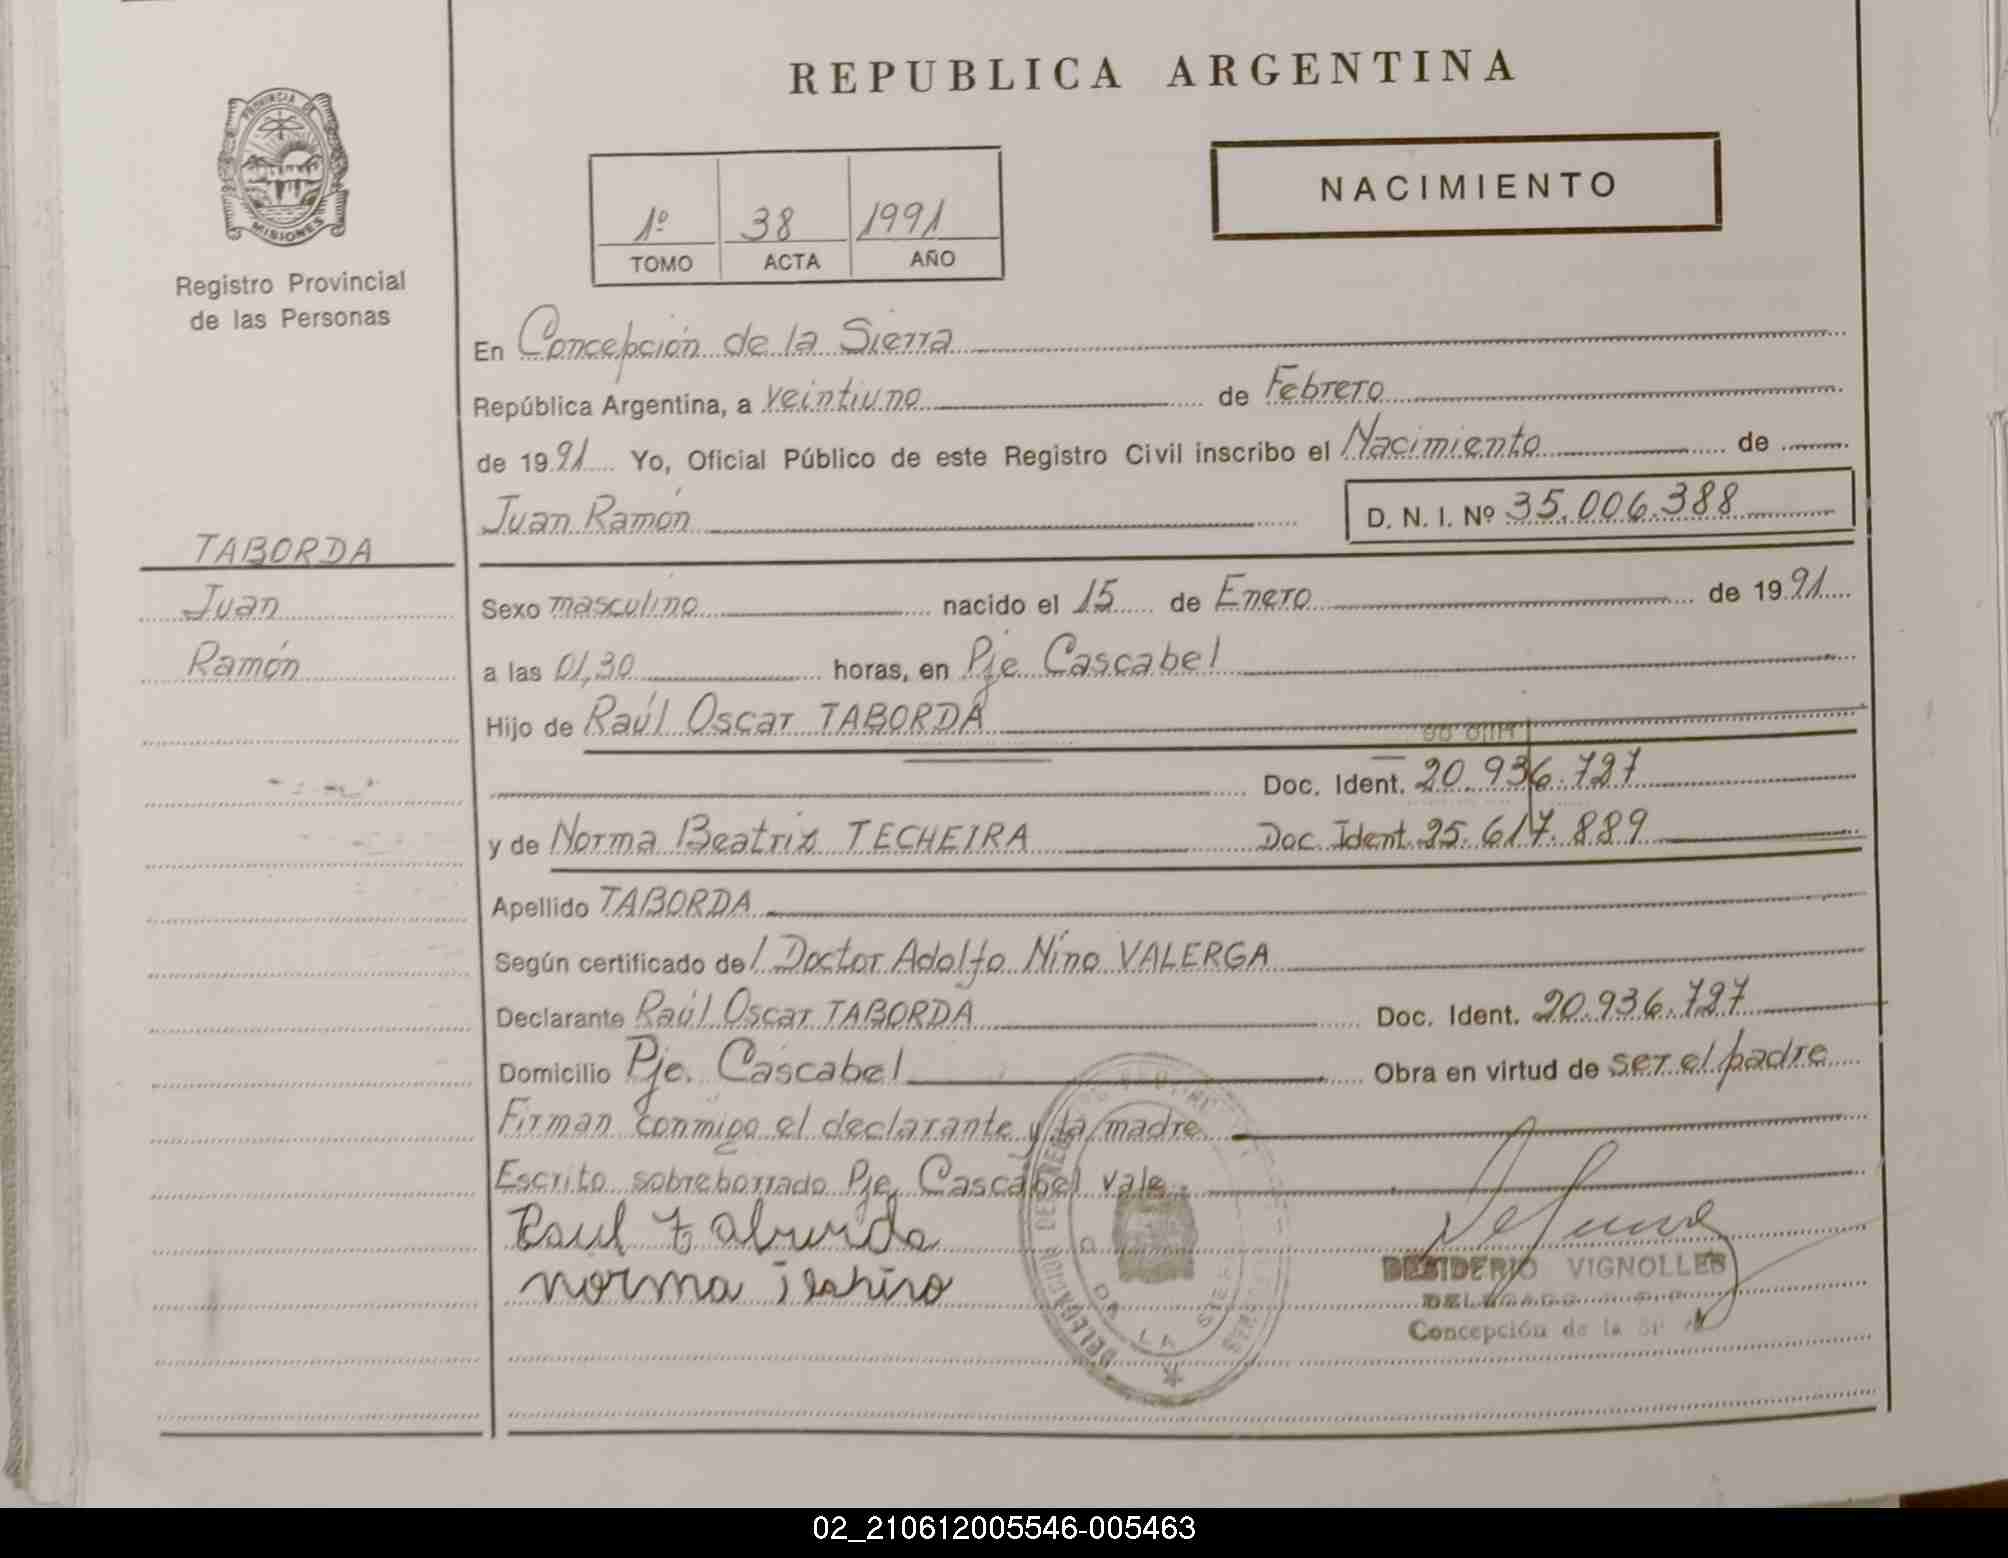 REPUBLICA ARGENTINA
PROVINCIA DE
MISIONES
Registro Provincial
de las Personas
1º 38 1991
TOMO ACTA AÑO
NACIMIENTO
En Concepción de la Sierra
República Argentina, a veintiuno de Febrero
de 1991 Yo, Oficial Público de este Registro Civil inscribo el Nacimiento de
Juan Ramón D. N. I. Nº 35.006.388
TABORDA
Juan
Ramón
Sexo masculino nacido el 15 de Enero de 1991
a las 01,30 horas, en Pje Cascabel
Hijo de Raúl Oscar TABORDA
Doc. Ident. 20.936.727
y de Norma Beatriz TECHEIRA Doc. Ident. 25.617.889
Apellido TABORDA
Según certificado del Doctor Adolfo Nino VALERGA
Declarante Raúl Oscar TABORDA Doc. Ident. 20.936.727
Domicilio Pje. Cascabel Obra en virtud de ser el padre
Firman conmigo el declarante y la madre
Escrito sobreborrado Pje. Cascabel vale.
Raul Taborda
norma
DESIDERIO VIGNOLLES
DELEGADO
Concepción de la
DA LA
02_210612005546-005463